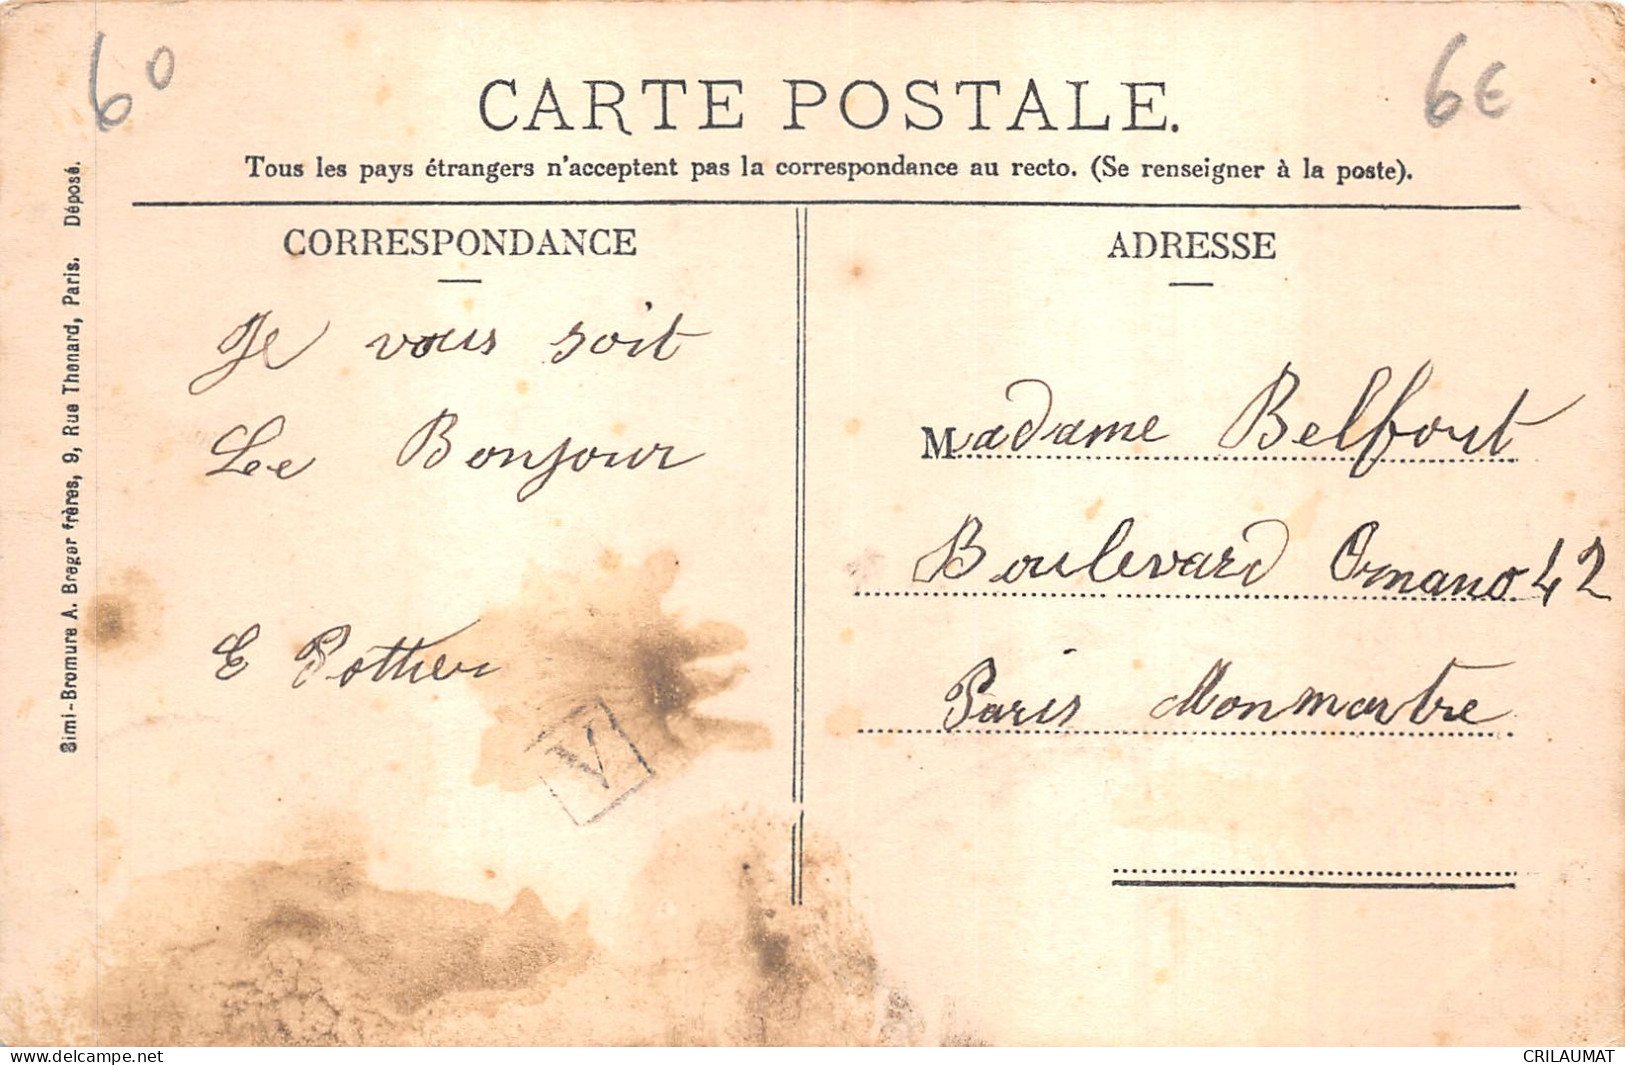 60
6€
CARTE POSTALE.
Tous les pays étrangers n'acceptent pas la correspondance au recto. (Se renseigner à la poste).
CORRESPONDANCE
Je vous soit
Le Bonjour
E Pottier
V
ADRESSE
Madame Belfort
Boulevard Ornano 42
Paris Monmartre
Simi-Bromure A. Breger frères, 9, Rue Thenard, Paris. Déposé.
www.delcampe.net
CRILAUMAT